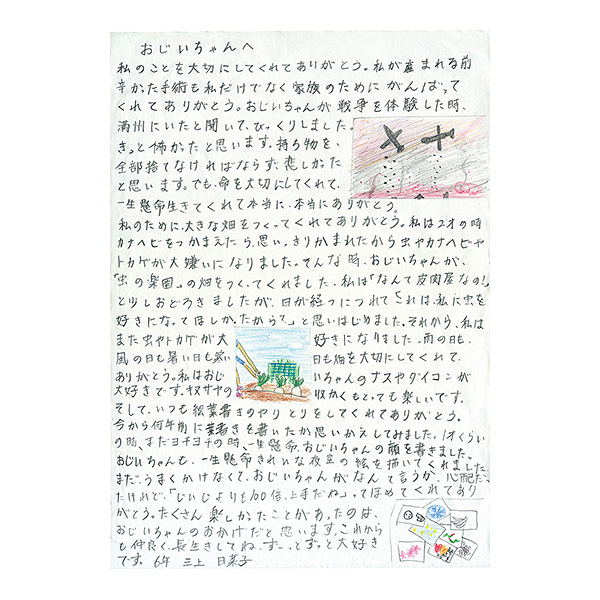 おじいちゃんへ
私のことを大切にしてくれてありがとう。私が産まれる前
辛かった手術も私だけでなく家族のためにがんばって
くれてありがとう。おじいちゃんが戦争を体験した時、
満州にいたと聞いて、びっくりしました。
きっと怖かったと思います。持ち物を、
全部捨てなければならず、悲しかった
と思います。でも、命を大切にしてくれて、
一生懸命生きてくれて本当に、本当にありがとう。
私のために、大きな畑をつくってくれてありがとう。私は2才の時
カナヘビをつかまえたら、思いっきりかまれたから虫やカナヘビや
トカゲが大嫌いになりました。そんな時、おじいちゃんが、
「虫の楽園」の畑をつくってくれました。私は「なんて皮肉屋なの!」
と少しおどろきましたが、日が経つにつれて「これは、私に虫を
好きになってほしかったから?」と思いはじめました。それから、私は
また虫やトカゲが大好きになりました。雨の日も、
風の日も暑い日も寒い日も畑を大切にしてくれて、
ありがとう。私はおじいちゃんのナスやダイコンが
大好きです。ヤサヤの収かくもとっても楽しいです。
そして、いつも絵葉書きのやりとりをしてくれてありがとう。
今から何年前に葉書きを書いたか思いかえしてみました。1才くらい
の時、まだヨチヨチの時、一生懸命、おじいちゃんの顔を書きました。
おじいちゃんも、一生懸命きれいな夜空の絵を描いてくれました。
まだ、うまくかけなくて、おじいちゃんがなんて言うか、心配だっ
たけれど、「じいじよりも100倍、上手だね」ってほめてくれてあり
がとう。たくさん楽しかったことがあったのは、
おじいちゃんのおかげだと思います。これから
も仲良く、長生きしてね。ずーっとずっと大好き
です。6年 三上 日菜子